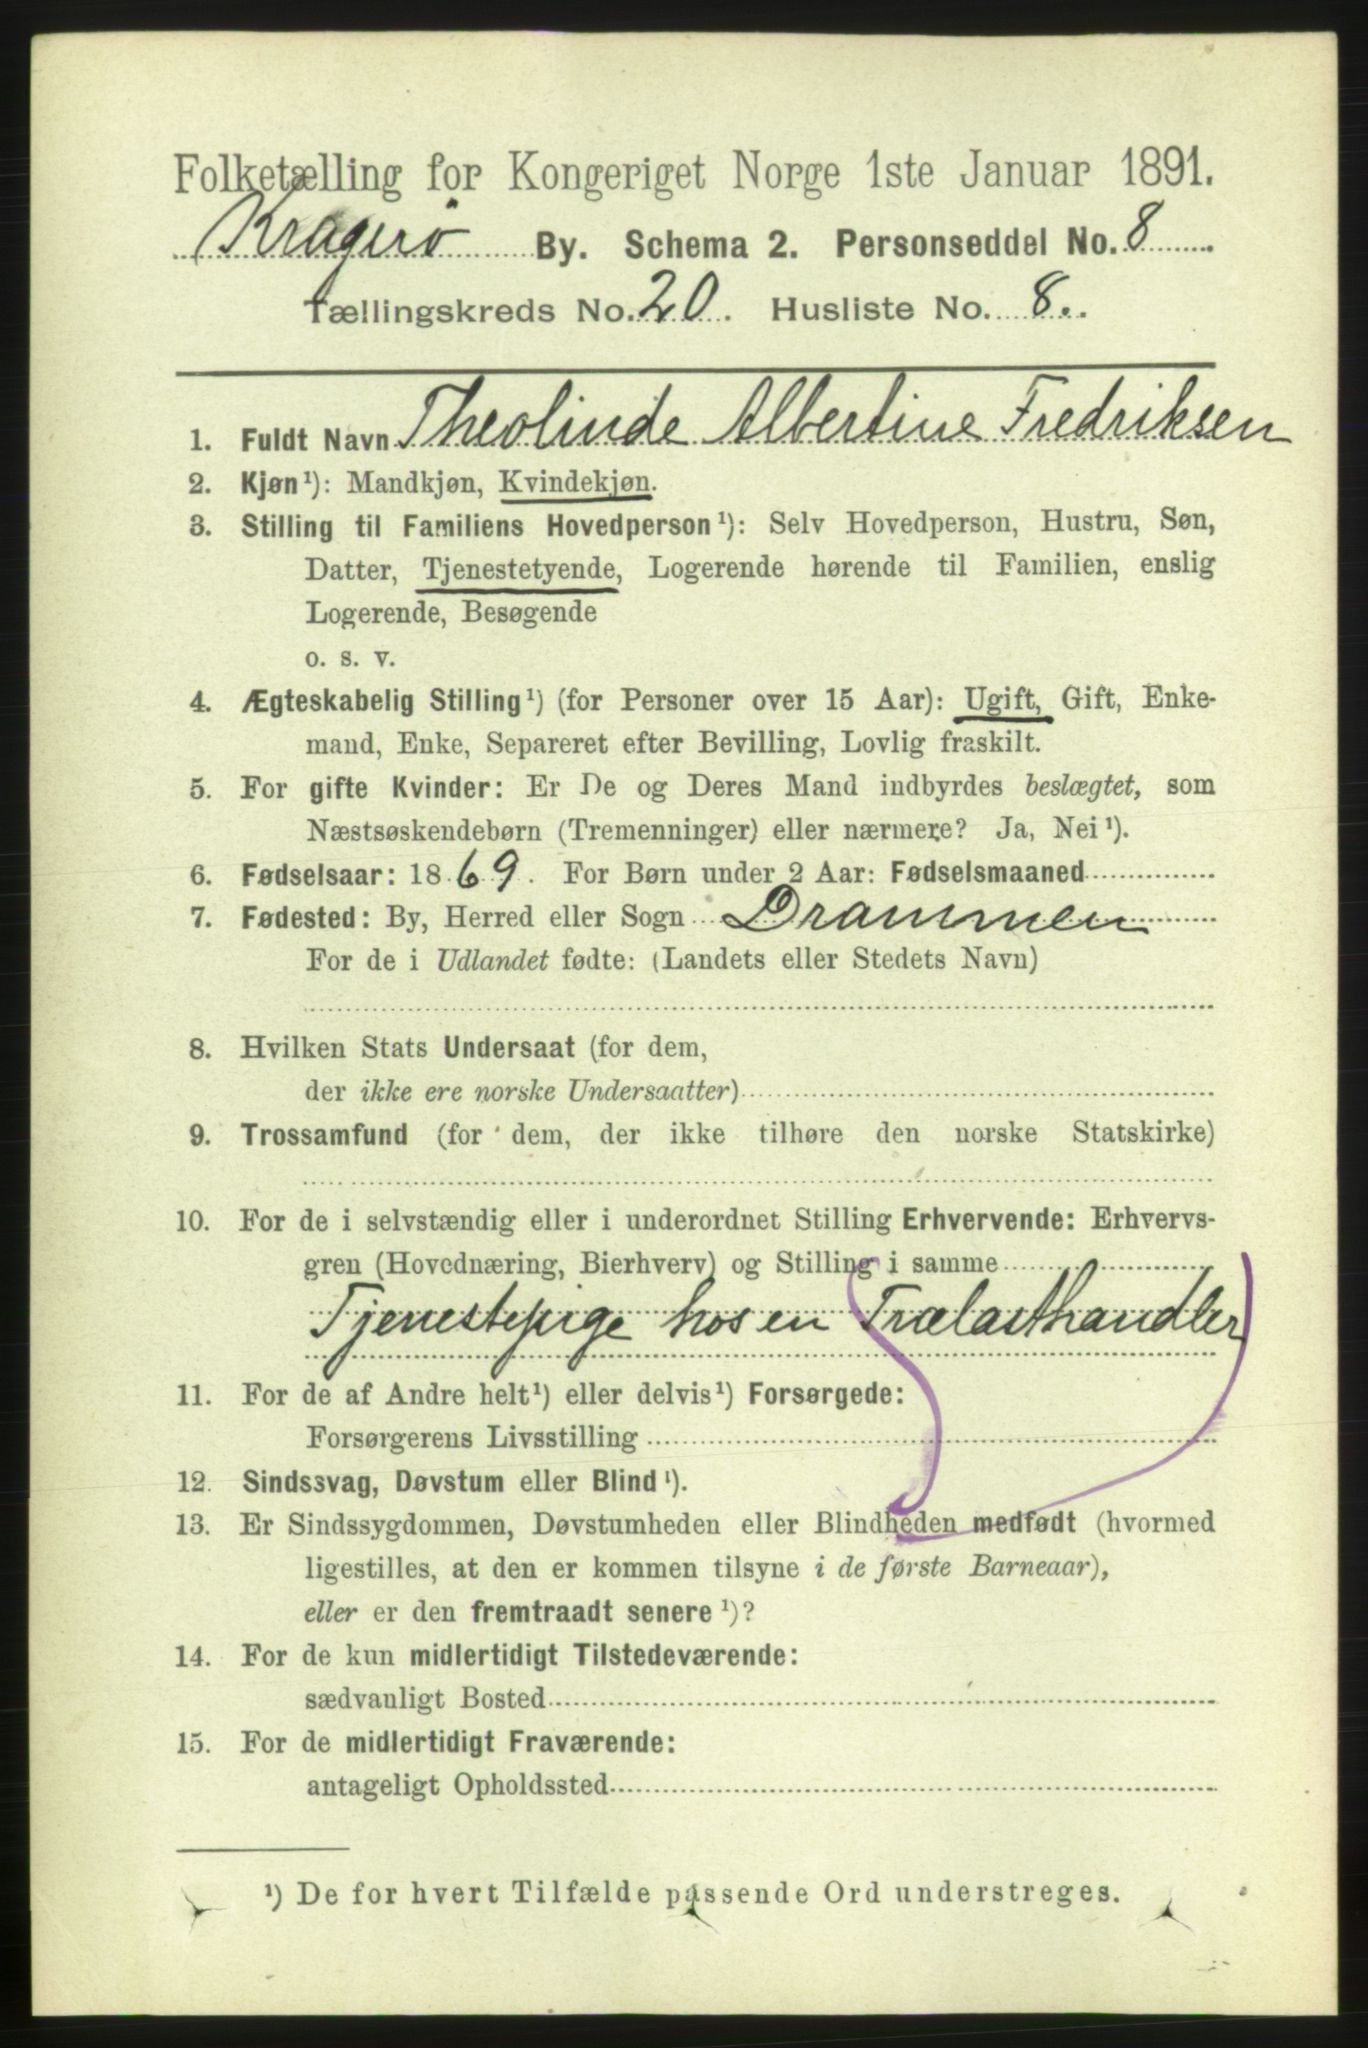 Folketælling for Kongeriget Norge 1ste Januar 1891.
Kragerø By. Schema 2. Personseddel No. 8
Tællingskreds No. 20. Husliste No. 8.
1. Fuldt Navn Theolinde Albertine Fredriksen
2. Kjøn¹): Mandkjøn, Kvindekjøn.
3. Stilling til Familiens Hovedperson¹): Selv Hovedperson, Hustru, Søn,
Datter, Tjenestetyende, Logerende hørende til Familien, enslig
Logerende, Besøgende
o. s. v.
4. Ægteskabelig Stilling¹) (for Personer over 15 Aar): Ugift, Gift, Enke-
mand, Enke, Separeret efter Bevilling, Lovlig fraskilt.
5. For gifte Kvinder: Er De og Deres Mand indbyrdes beslægtet, som
Næstsøskendebørn (Tremenninger) eller nærmere? Ja, Nei¹).
6. Fødselsaar: 1869. For Børn under 2 Aar: Fødselsmaaned
7. Fødested: By, Herred eller Sogn Drammen
For de i Udlandet fødte: (Landets eller Stedets Navn)
8. Hvilken Stats Undersaat (for dem,
der ikke ere norske Undersaatter)
9. Trossamfund (for dem, der ikke tilhøre den norske Statskirke)
10. For de i selvstændig eller i underordnet Stilling Erhvervende: Erhvervs-
gren (Hovednæring, Bierhverv) og Stilling i samme
Tjenestepige hos en Trælasthandler
11. For de af Andre helt¹) eller delvis¹) Forsørgede:
Forsørgerens Livsstilling
12. Sindssvag, Døvstum eller Blind¹).
13. Er Sindssygdommen, Døvstumheden eller Blindheden medfødt (hvormed
ligestilles, at den er kommen tilsyne i de første Barneaar),
eller er den fremtraadt senere¹)?
14. For de kun midlertidigt Tilstedeværende:
sædvanligt Bosted
15. For de midlertidigt Fraværende:
antageligt Opholdssted
¹) De for hvert Tilfælde passende Ord understreges.